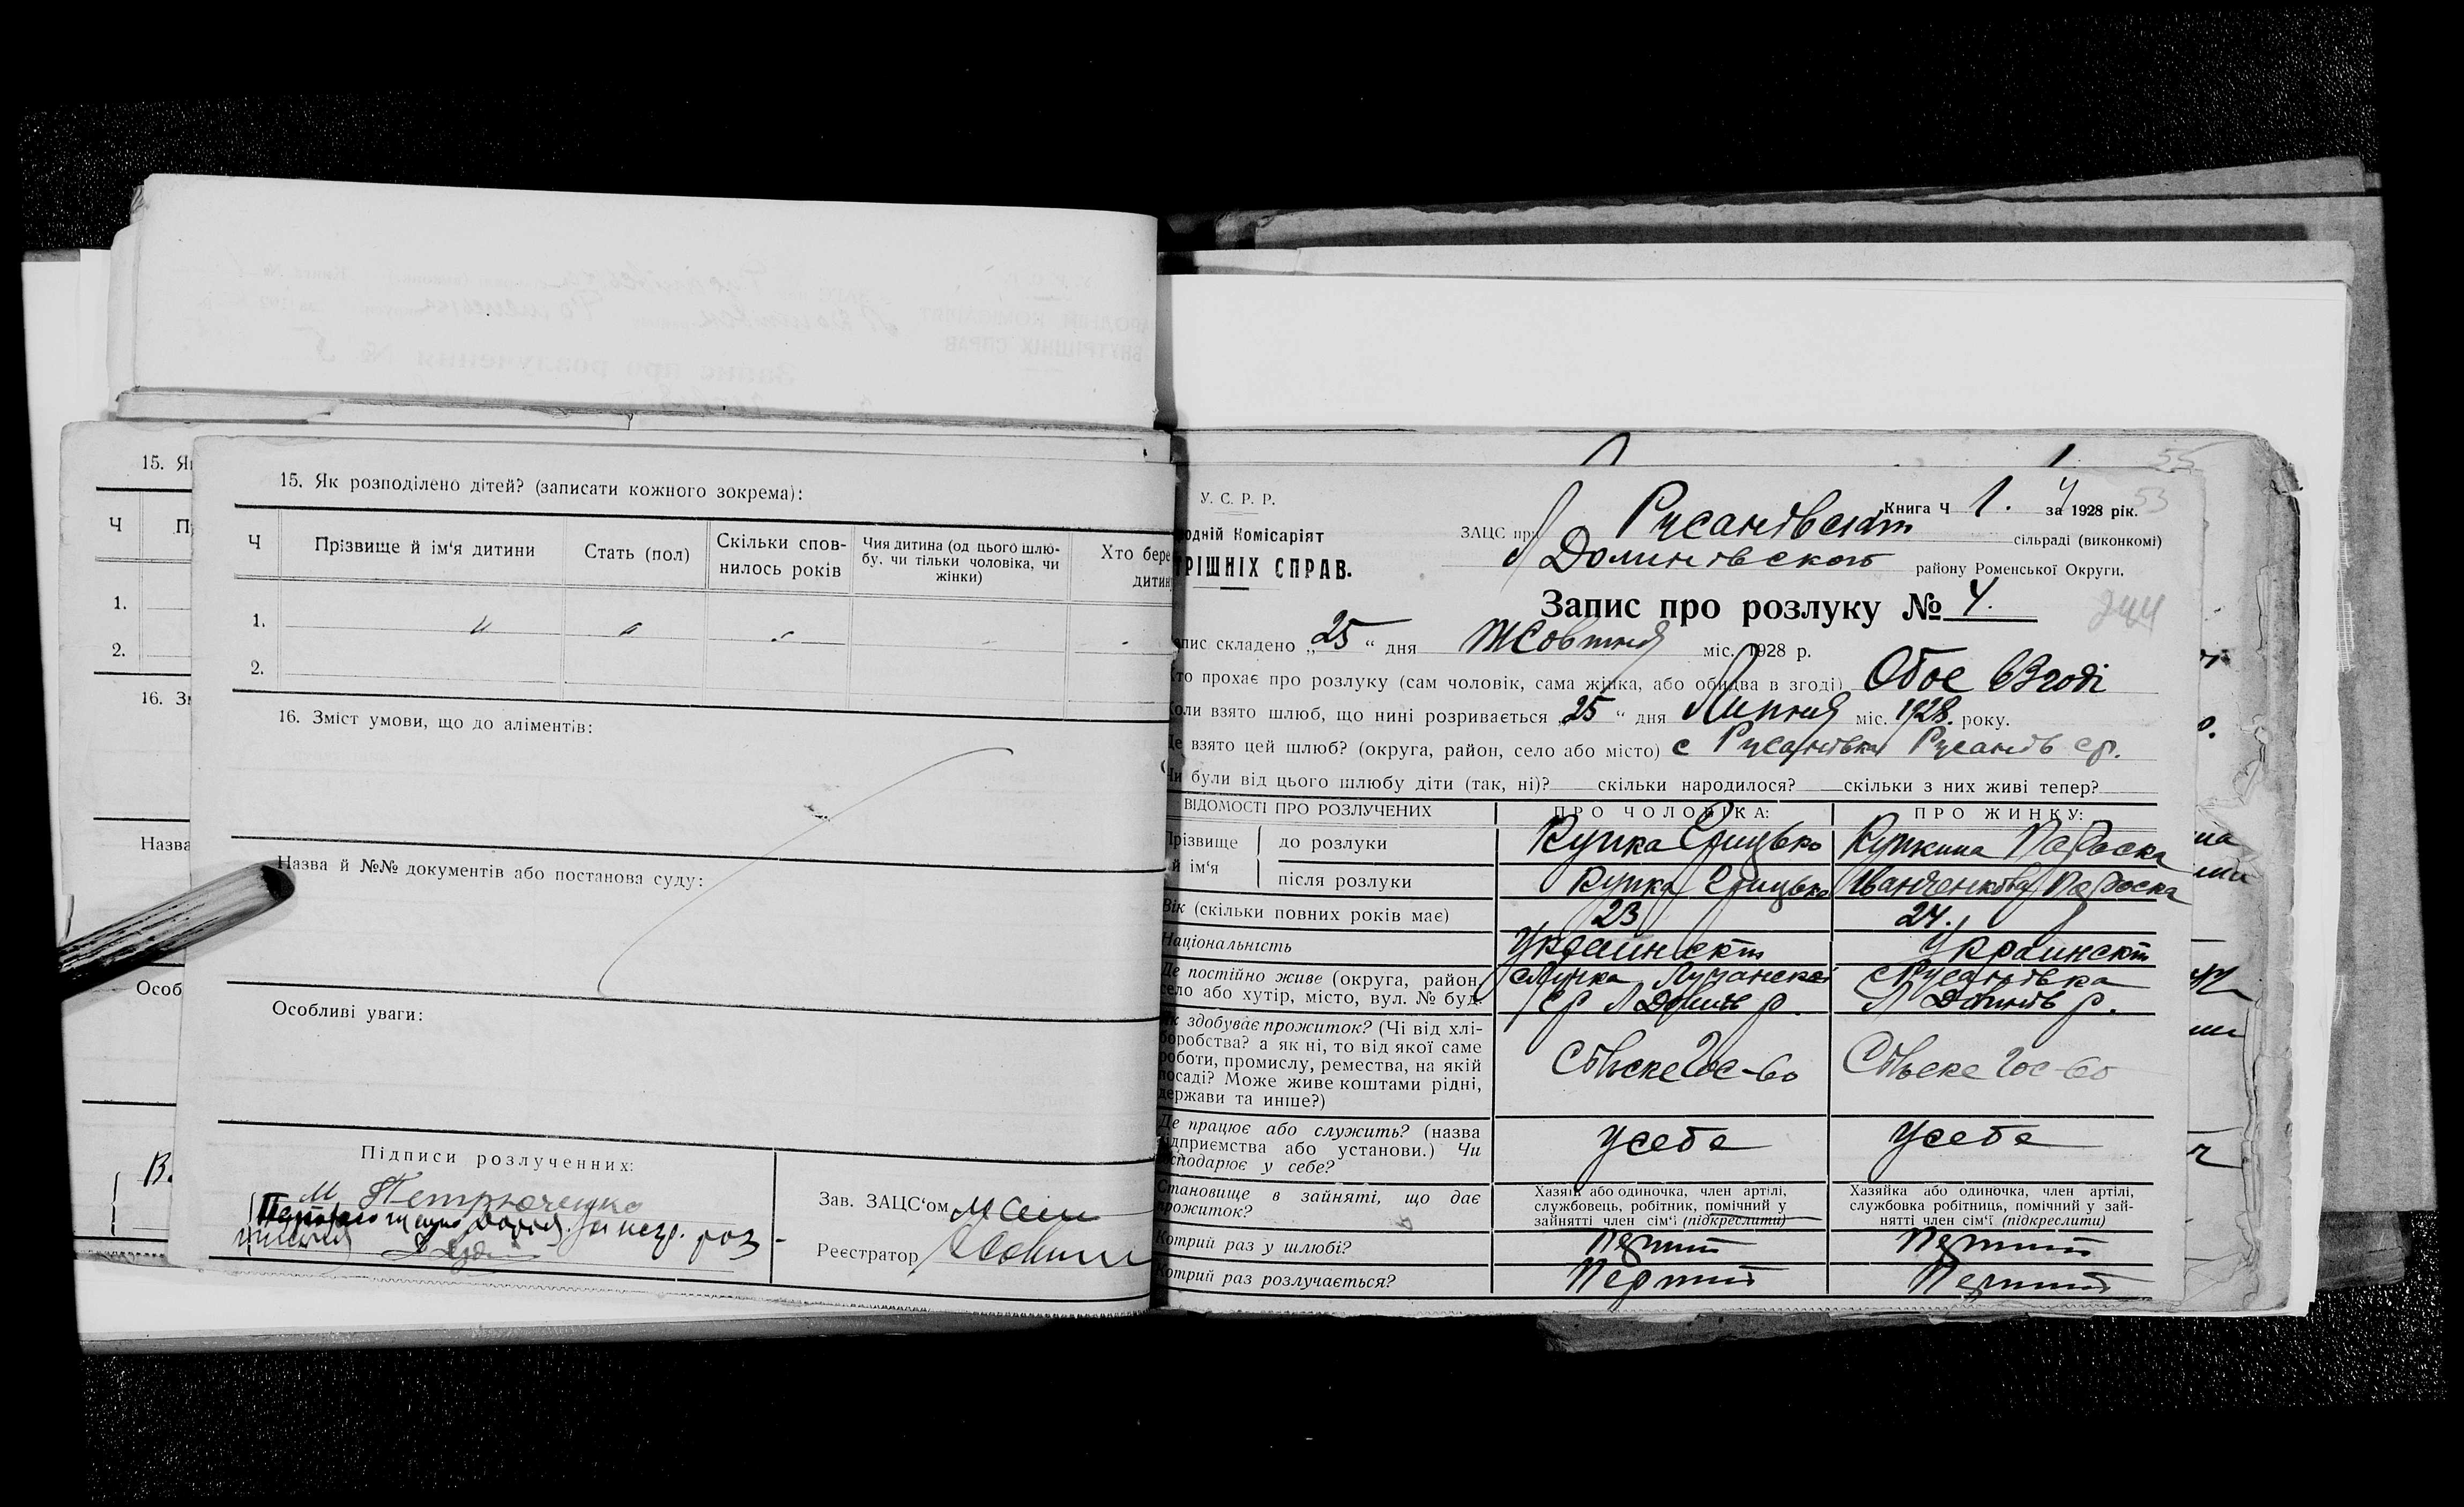 15. Як розподілено дітей? (записати кожного зокрема):
Ч
Прізвище й ім‘я дитини
Стать (пол)
Скільки спов-
нилось років
Чия дитина (од цього шлю-
бу, чи тільки чоловіка, чи
жінки)
Хто бере
дитин
1.
2.
16. Зміст умови, що до аліментів:
Назва й №№ документів або постанова суду:
Особливі уваги:
Підписи розлученних:
Зав. ЗАЦС‘ом
Реєстратор
15. Я
Ч
П
1.
2.
16. З
Назва
Особ
У. С. Р. Р.
родній Комісаріят
ТРІШНІХ СПРАВ.
Книга Ч 1. за 1928 рік.
53
ЗАЦС при Русанівскій сільраді (виконкомі)
Л Долинівского району Роменської Округи.
Запис про розлуку № 4.
244
пис складено „25“ дня Жовтня міс. 1928 р.
то прохає про розлуку (сам чоловік, сама жінка, або обидва в згоді) Обоє вЗгоді
оли взято шлюб, що нині розривається „25“ дня Липня міс. 1928. року.
е взято цей шлюб? (округа, район, село або місто) с Русанівка Русанів ср.
и були від цього шлюбу діти (так, ні)? скільки народилося? скільки з них живі тепер?
ВІДОМОСТІ ПРО РОЗЛУЧЕНИХ
ПРО ЧОЛОВІКА:
ПРО ЖИНКУ:
Прізвище й ім‘я
до розлуки
Купка Грицько
Купкина
після розлуки
Купка Грицько
Іванченкова
Вік (скільки повних років має)
23
24.
Національність
Украинскт
Украинскт
Де постійно живе (округа, район,
село або хутір, місто, вул. № буд.
ср Л Долинів р.
с Русанівка
Л Долинів р.
Як здобуває прожиток? (Чі від хлі-
боробства? а як ні, то від якої саме
роботи, промислу, ремества, на якій
посаді? Може живе коштами рідні,
держави та инше?)
Сільске Гос-во
Сільске Гос-во
Де працює або служить? (назва
підприємства або установи.) Чи
господарює у себе?
Усебе
Усебе
Становище в зайняті, що дає
прожиток?
Хазяїн або одиночка, член артілі,
службовець, робітник, помічний у
зайнятті член сім‘ї (підкреслити)
Хазяйка або одиночка, член артілі,
службовка робітниць, помічний у зай-
нятті член сім‘ї (підкреслити)
Котрий раз у шлюбі?
Перший
Перший
Котрий раз розлучається?
Перший
Перший